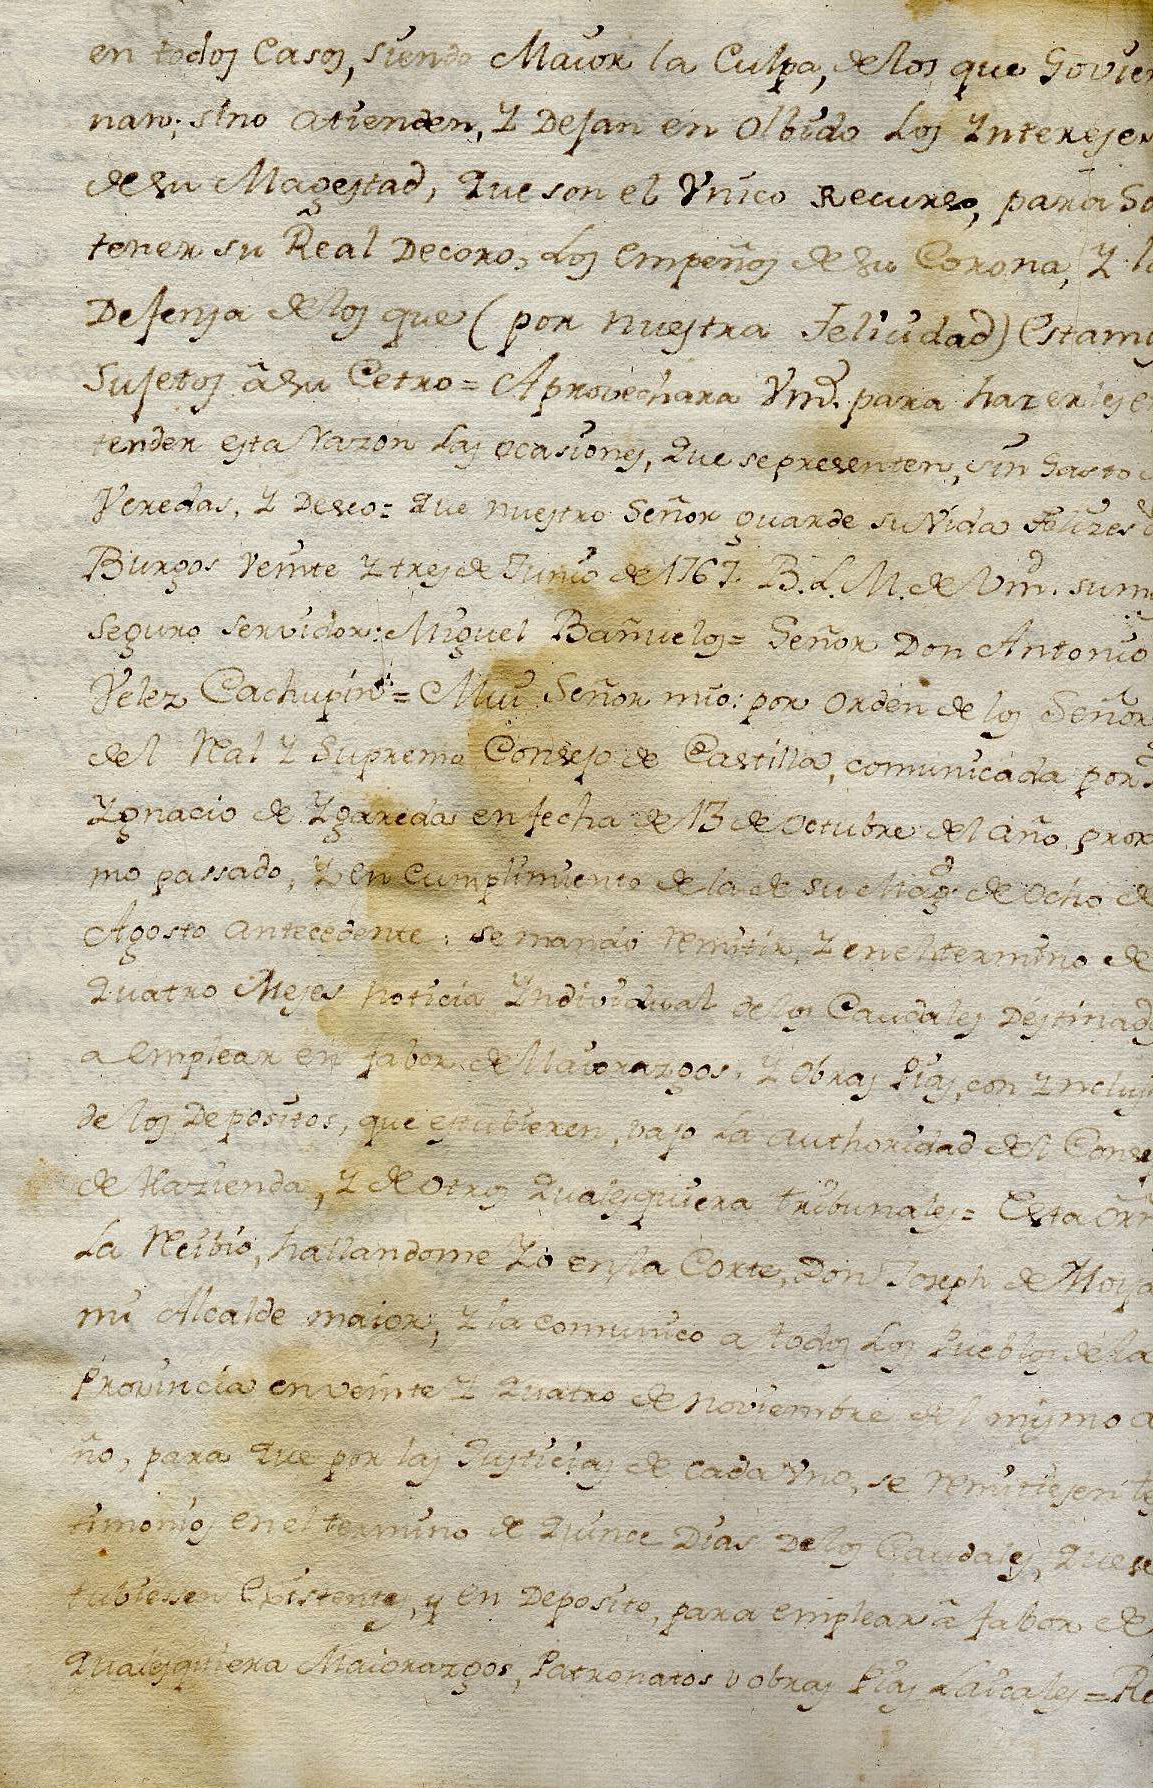 en todos Casos, siendo Maior la Culpa, delos que Govier
nan; sino atienden, Y Dejan en Olbido Los Yntereses
desu Magestad, que son el Vnico Recurso, para So
tener su Real Decoro, Los Empeños desu Corona, Y la
Defensa delos que (por nuestra Felicidad) Estamos
Sujetos âsu Cetro = Aprovechara Vmd. para hazerles e
tender esta razon Las ocasiones, que sepresenten, sin Gasto
Veredas, Y Deseo = que nuestro Señor guarde su Vida felizes
Burgos Veinte Y tres de Junio de 1767. B. L. M. de Vmd. su m
Seguro servidor: Miguel Bañuelos = Señor Don Antonio
Velez Cachupin = Mui Señor mio: por orden de los Señor
del Real Y Supremo Consejo de Castilla, comunicada por
Ygnacio de Ygareda en fecha de 13 de Octubre del año prox
mo passado, Y en Cumplimiento de la de su Magd. de Ocho de
Agosto antecedente: se mando remitir, Y enel termino de
quatro Meses noticia Yndividual de los Caudales Destinad
a emplear en fabor de Maiorazgos, Y Obras Pias, con Ynclu
de los Depositos, que estubieren, vajo La authoridad del Conse
de Hazienda, Y de otros qualesquiera tribunales = Esta orn
La Recibio, hallandome Yo en la Corte, Don Joseph de Moya
mi Alcalde maior, Y la comunico a todos Los Pueblos dela
Provincia en veinte Y quatro de noviembre del mismo a
ño, para que por las Justicias de cada Vno, se remitiesen te
timonios en el termino de quince Dias De los Caudales, que es
tubiessen Existentes, y en Deposito, para emplear â fabor de
qualesquiera Maiorazgos, Patronatos v obras Pias Laicales = Re